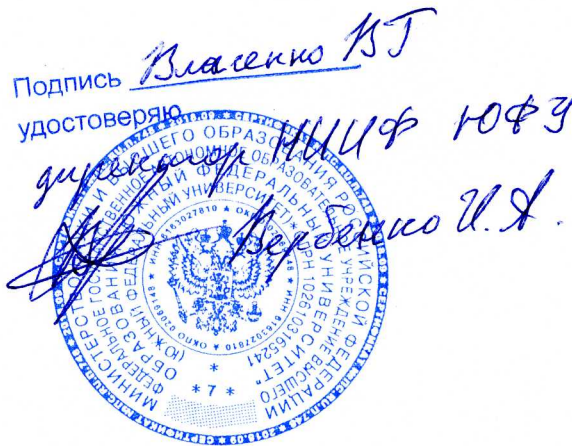 Подпись Власенко ВГ
удостоверяю
директор НИИФ ЮФУ
Вербенко И.А.
МИНИСТЕРСТВО НАУКИ И ВЫСШЕГО ОБРАЗОВАНИЯ РОССИЙСКОЙ ФЕДЕРАЦИИ
ФЕДЕРАЛЬНОЕ ГОСУДАРСТВЕННОЕ АВТОНОМНОЕ ОБРАЗОВАТЕЛЬНОЕ УЧРЕЖДЕНИЕ ВЫСШЕГО
ОБРАЗОВАНИЯ "ЮЖНЫЙ ФЕДЕРАЛЬНЫЙ УНИВЕРСИТЕТ"
(ЮЖНЫЙ ФЕДЕРАЛЬНЫЙ УНИВЕРСИТЕТ) ОГРН 1026103165241
* ИНН 6163027810 * ОКПО 02069148
* 7 *